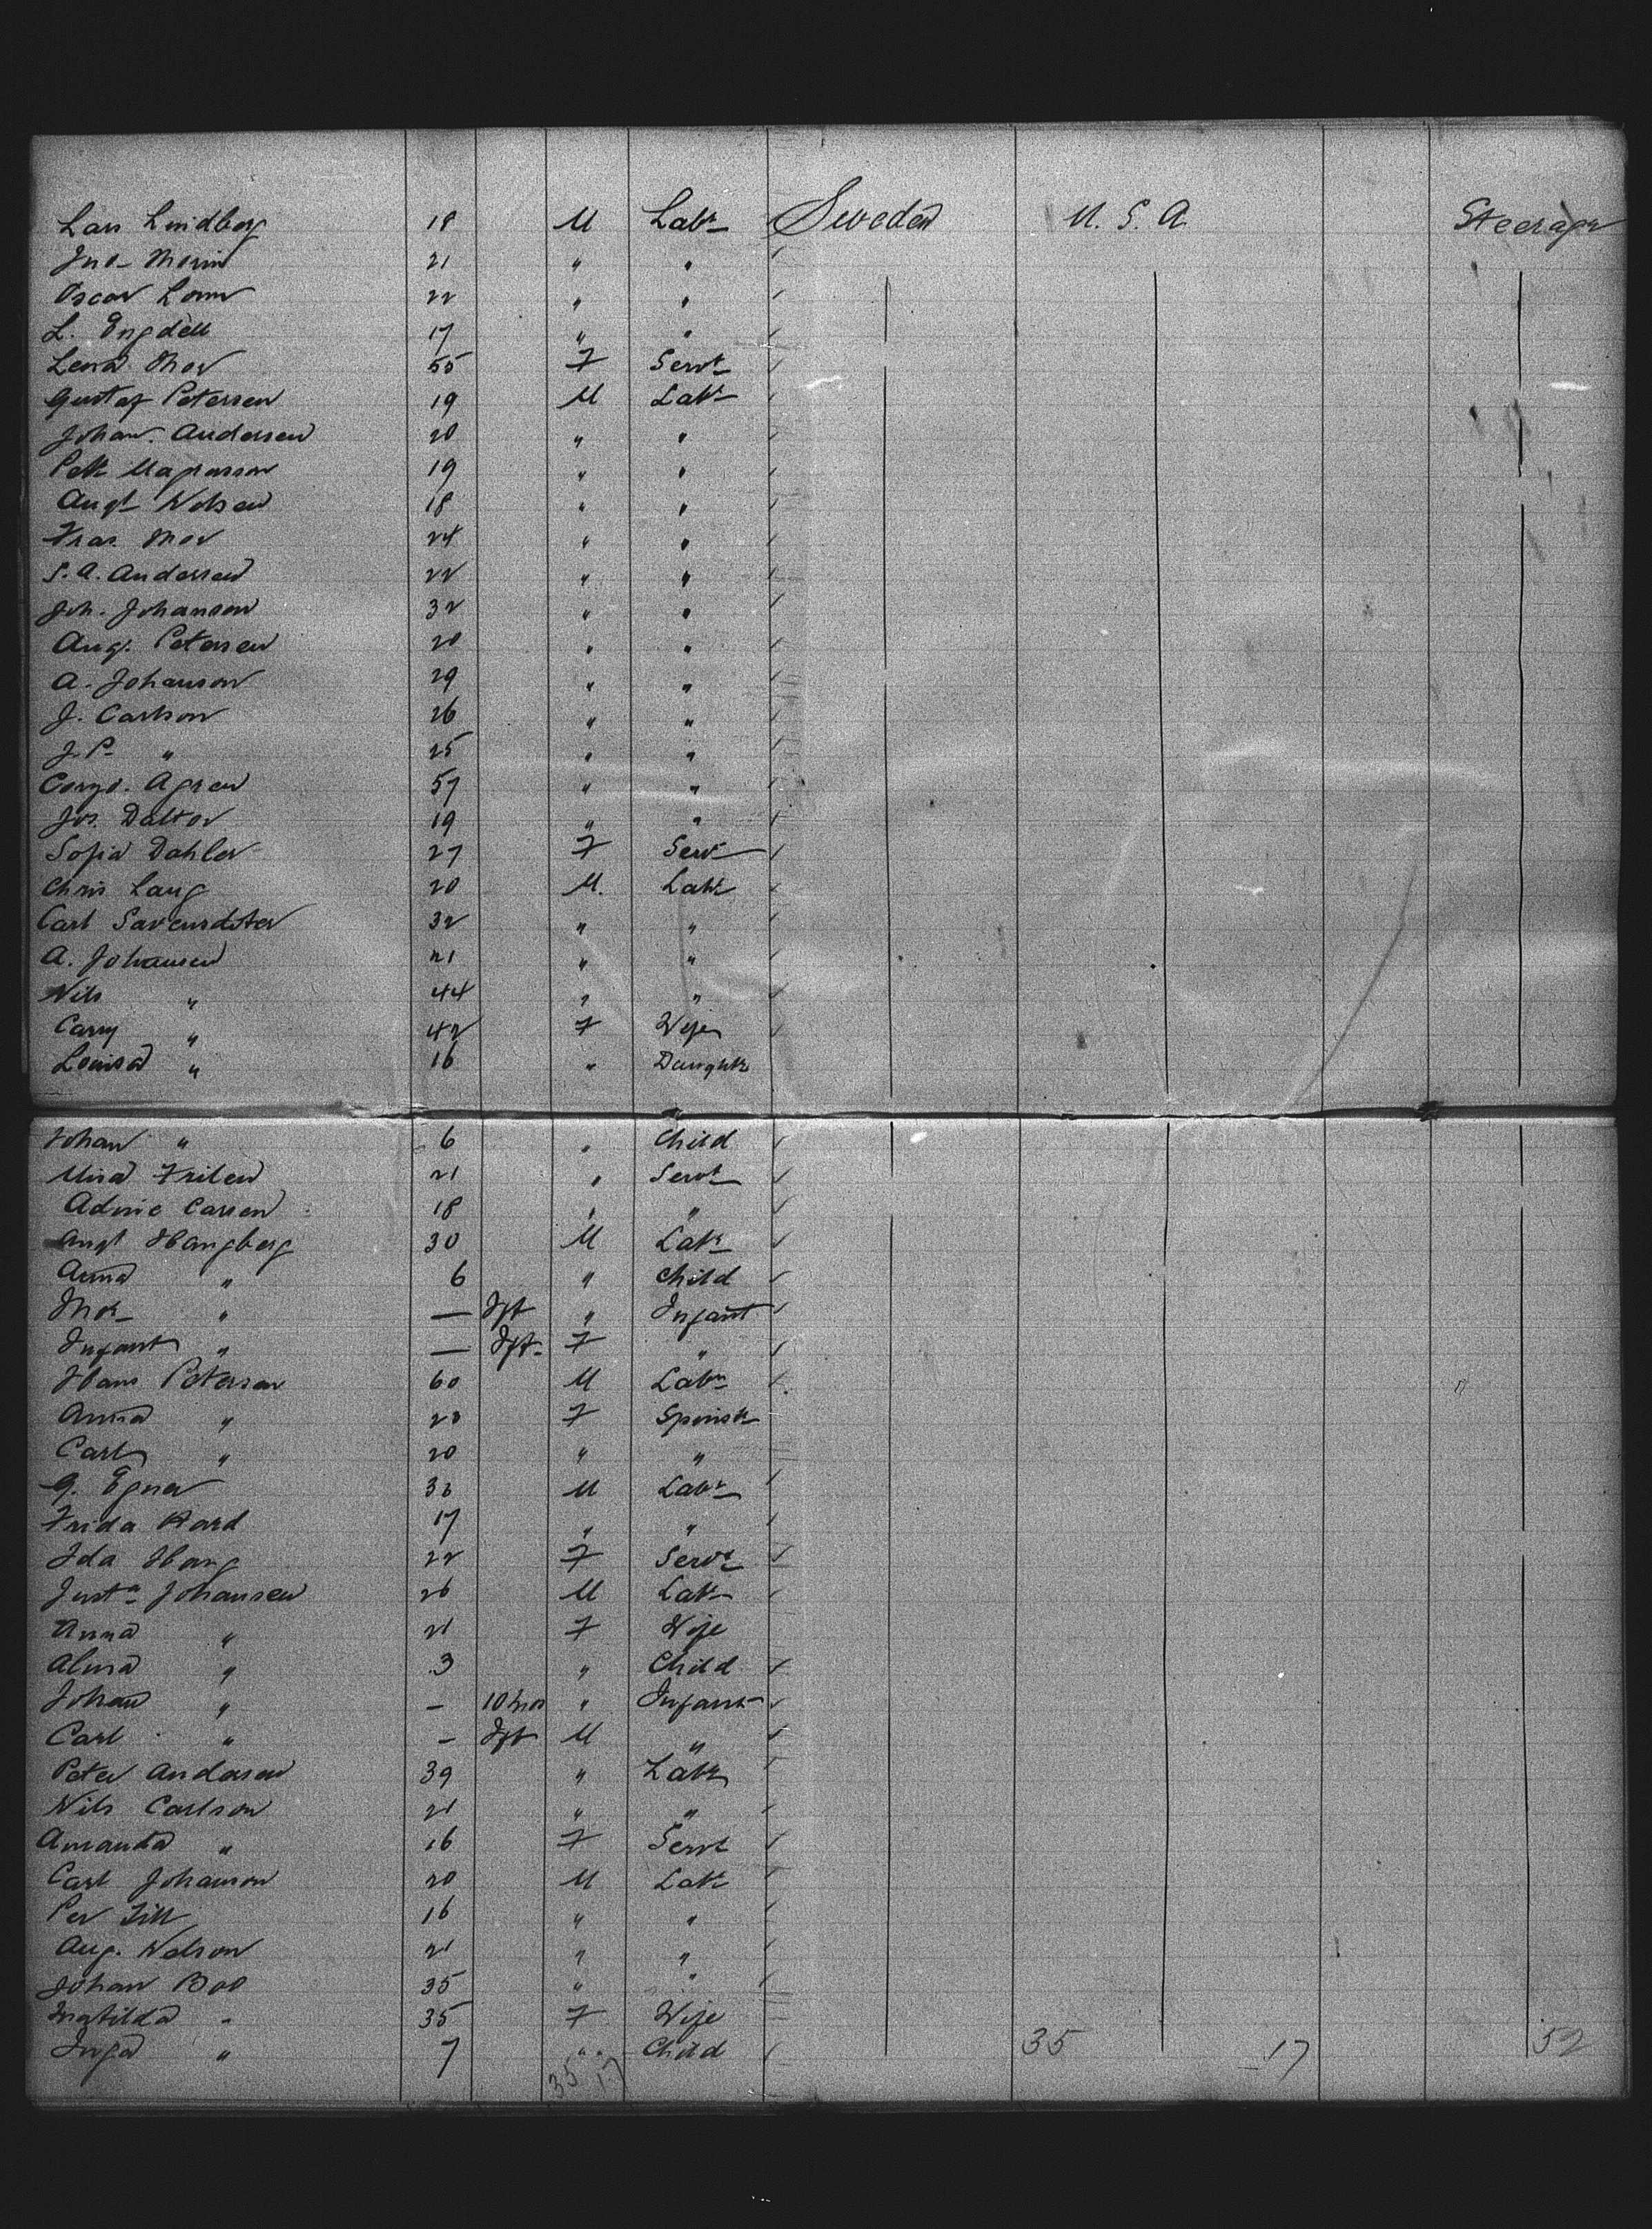 Lars Lindberg 18 M Labr Sweden U. S. A. Steerage
Jno- Morin 21 " "
Oscar Lonn 22 " "
L. Engdell 17 " "
Lena Mor 55 F Servt
Gustaf Petersen 19 M Labr
Johan. Andersen 20 " "
Petr Magnusson 19 " "
Augt Nelsen 18 " "
Fras. Mor 24 " "
S. A. Andersen 22 " "
Joh. Johanson 32 " "
Aug. Petersen 20 " "
A. Johanson 29 " "
J. Carlson 26 " "
J. P. " 25 " "
Agren 57 " "
Jos. Dalton 19 " "
Sofia Dahler 27 F Servt
Chris Lang 20 M. Labr
Carl 32 " "
A. Johansen 21 " "
Nils " 44 " "
Carry " 42 F Wife
Louisa " 16 " Daughtr
Johan " 6 " Child
Mina Frilen 21 " Servt
Carsen 18 " "
Augt Hangberg 30 M Labr
Anna " 6 " Child
" — Ift " Infant
Infant " — Ift. F "
Hans Petersen 60 M Labr
Anna " 23 F Spinstr
Carl " 20 " "
G. Egner 33 M Labr
Frida Hard 17 " "
Ida Hang 22 F Servt
Justn Johansen 26 M Labr
Anna " 21 F Wife
Alma " 3 " Child
Johan " - 10 mos " Infant
Carl " - Ift M "
Peter Andersen 39 " Labr
Nils Carlson 21 " "
Amanda " 16 F Servt
Carl Johanson 20 M Labr
Per Till 16 " "
Aug. Nelson 21 " "
Johan Boo 35 " "
Matilda " 35 F Wife
Inga " 7 " " Child 35 17 52
35 17